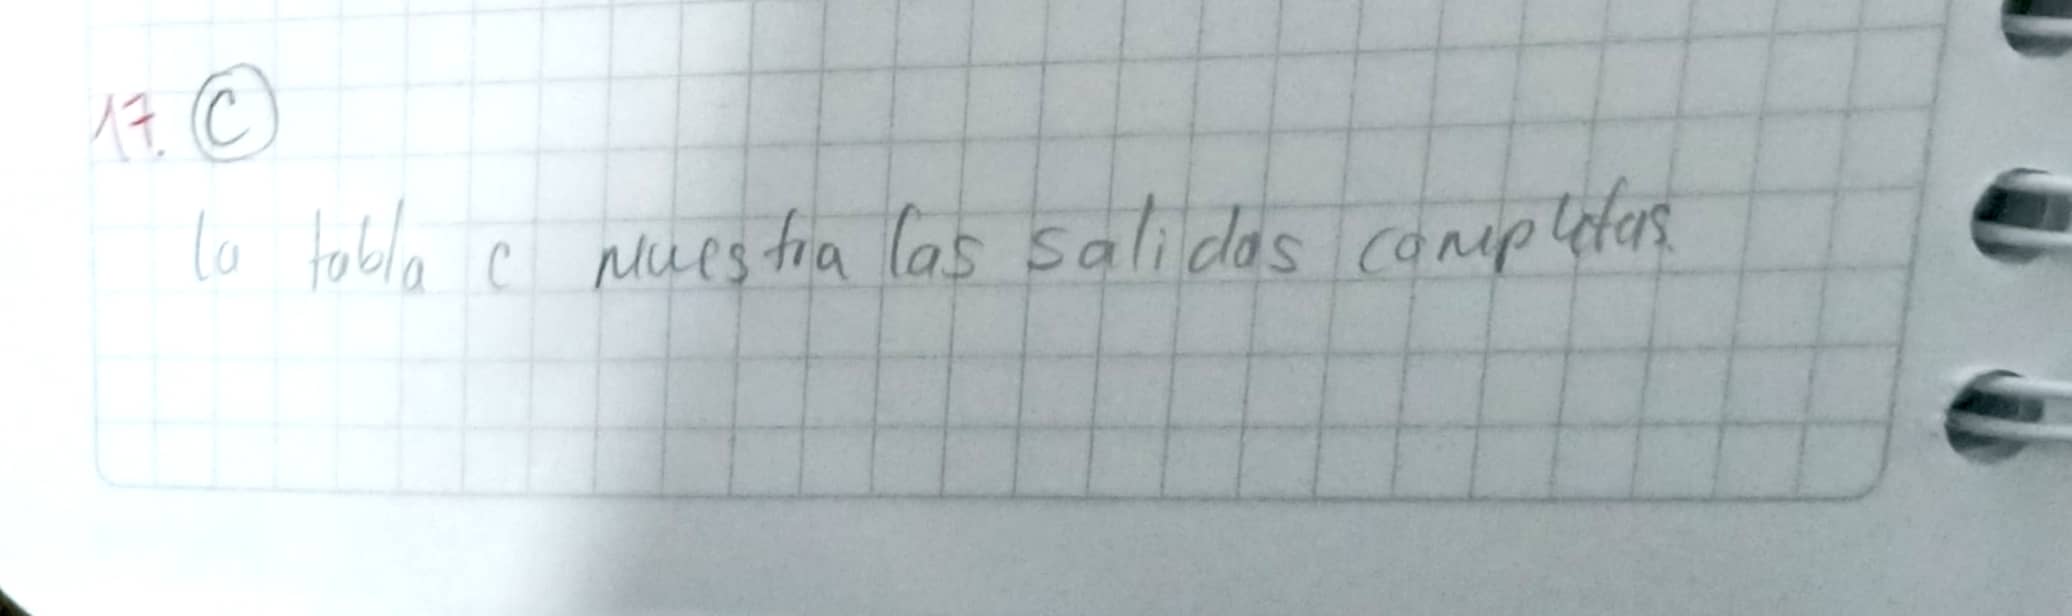 17. C
la tabla c muestra las salidas completas.